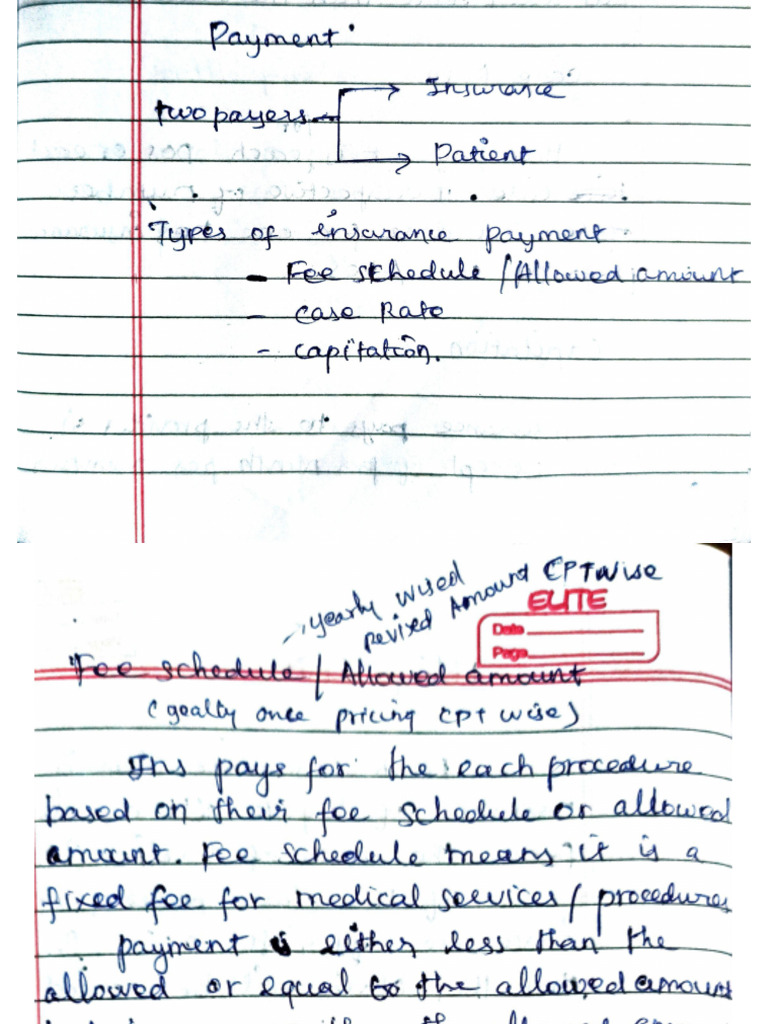 Payment
Insurance
two payers
Patient
Types of insurance payment
- Fee schedule / Allowed amount
- case Rate
- capitation.
yearly wised CPT wise
revised Amount
ELITE
Date
Page
Fee schedule / Allowed amount
( once pricing CPT wise)
Ins pays for the each procedure
based on their fee schedule or allowed
amount. Fee schedule means it is a
fixed fee for medical services / procedures
payment is either less than the
allowed or equal to the allowed amount